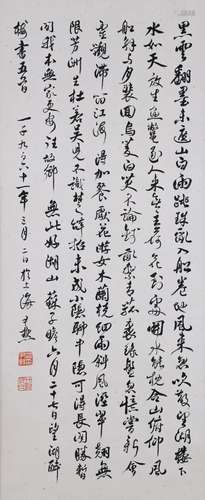 黑雲翻墨未遮山白雨跳珠亂入船卷地風來忽吹散望湖樓下
水如天放生魚鱉逐人來無主荷花到處開水枕能令山俯仰風
船解與月裴回烏菱白芡不論錢亂繫青菰裹綠盤忽憶嘗新會
靈觀滯留江海得加餐獻花游女木蘭橈細雨斜風濕翠翹無
限芳洲生杜若吳兒不識楚辭招未成小隱聊中隱可得長閒勝暫
閒我本無家更安往故鄉無此好湖山蘇子瞻六月二十七日望湖醉
樓書五首
一千九百六十一年三月二日於上海尹默